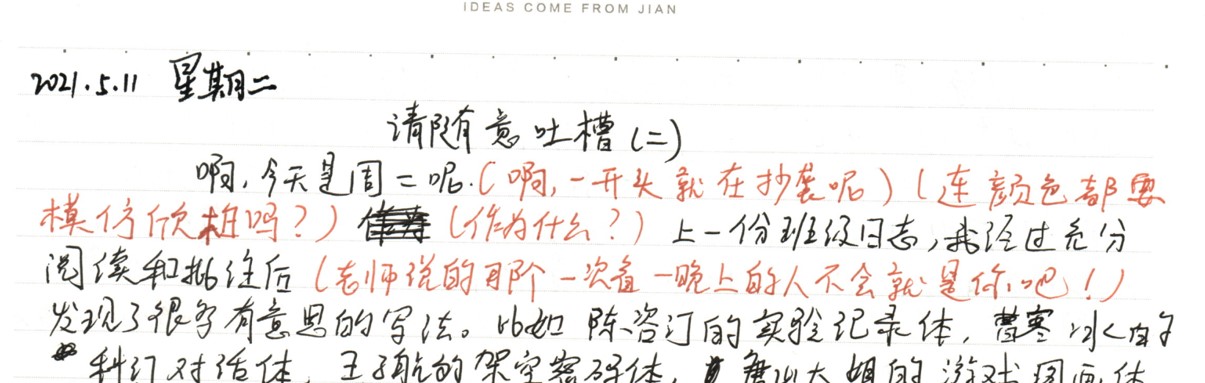 IDEAS COME FROM JIAN
2021.5.11 星期二
请随意吐槽(二)
啊,今天是周二呢.(啊,一开头就在抄袭呢)(连颜色都要
模仿欣桐吗?) (作为什么?)上一份班级日志,我经过充分
阅读和批注后(老师说的那个一次看一晚上的人不会就是你吧!)
发现了很多有意思的写法。比如陈咨订的实验记录体,曹寒冰的
科幻对话体,王子航的架空密码体,大姐的游戏同画体